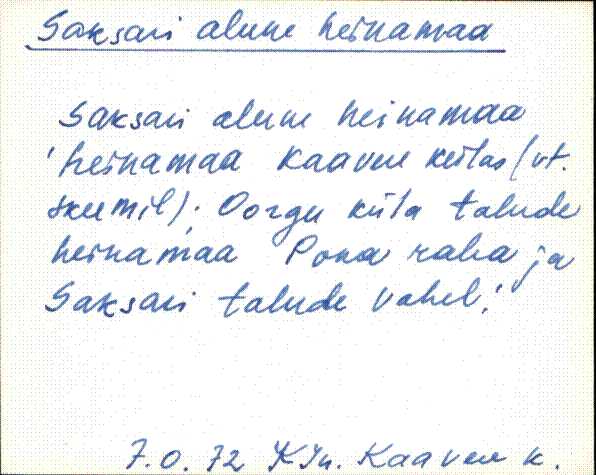 Saksari alune heinamaa
Saksari alune heinamaa
'heinamaa Kaavere külas (vt.
skeemil); Oorgu küla talude
heinamaa Pona raba ja
Saksari talude vahel.'
7.0.72 KJn. Kaavere k.